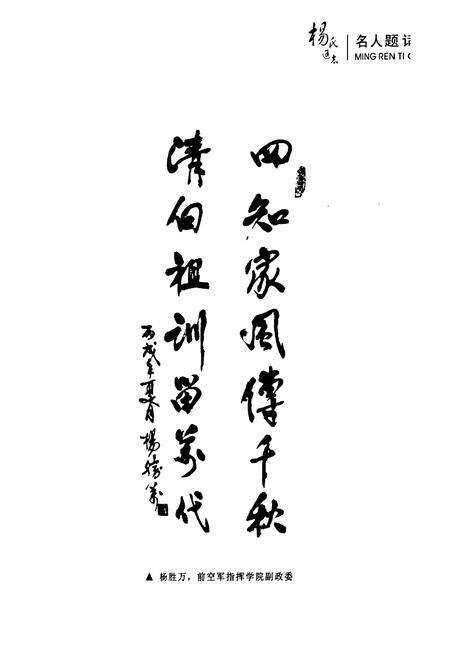 杨氏通志
名人题词
MING REN TI C
四知家風傳千秋
清白祖訓留萬代
丙戌年夏月 楊勝萬
▲ 杨胜万，前空军指挥学院副政委